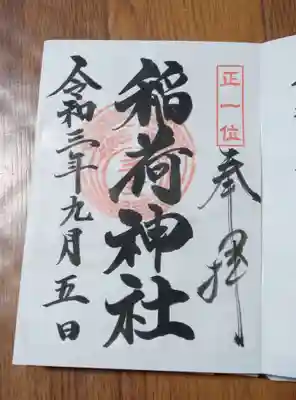 正一位
奉拝
稲荷神社
令和三年九月五日